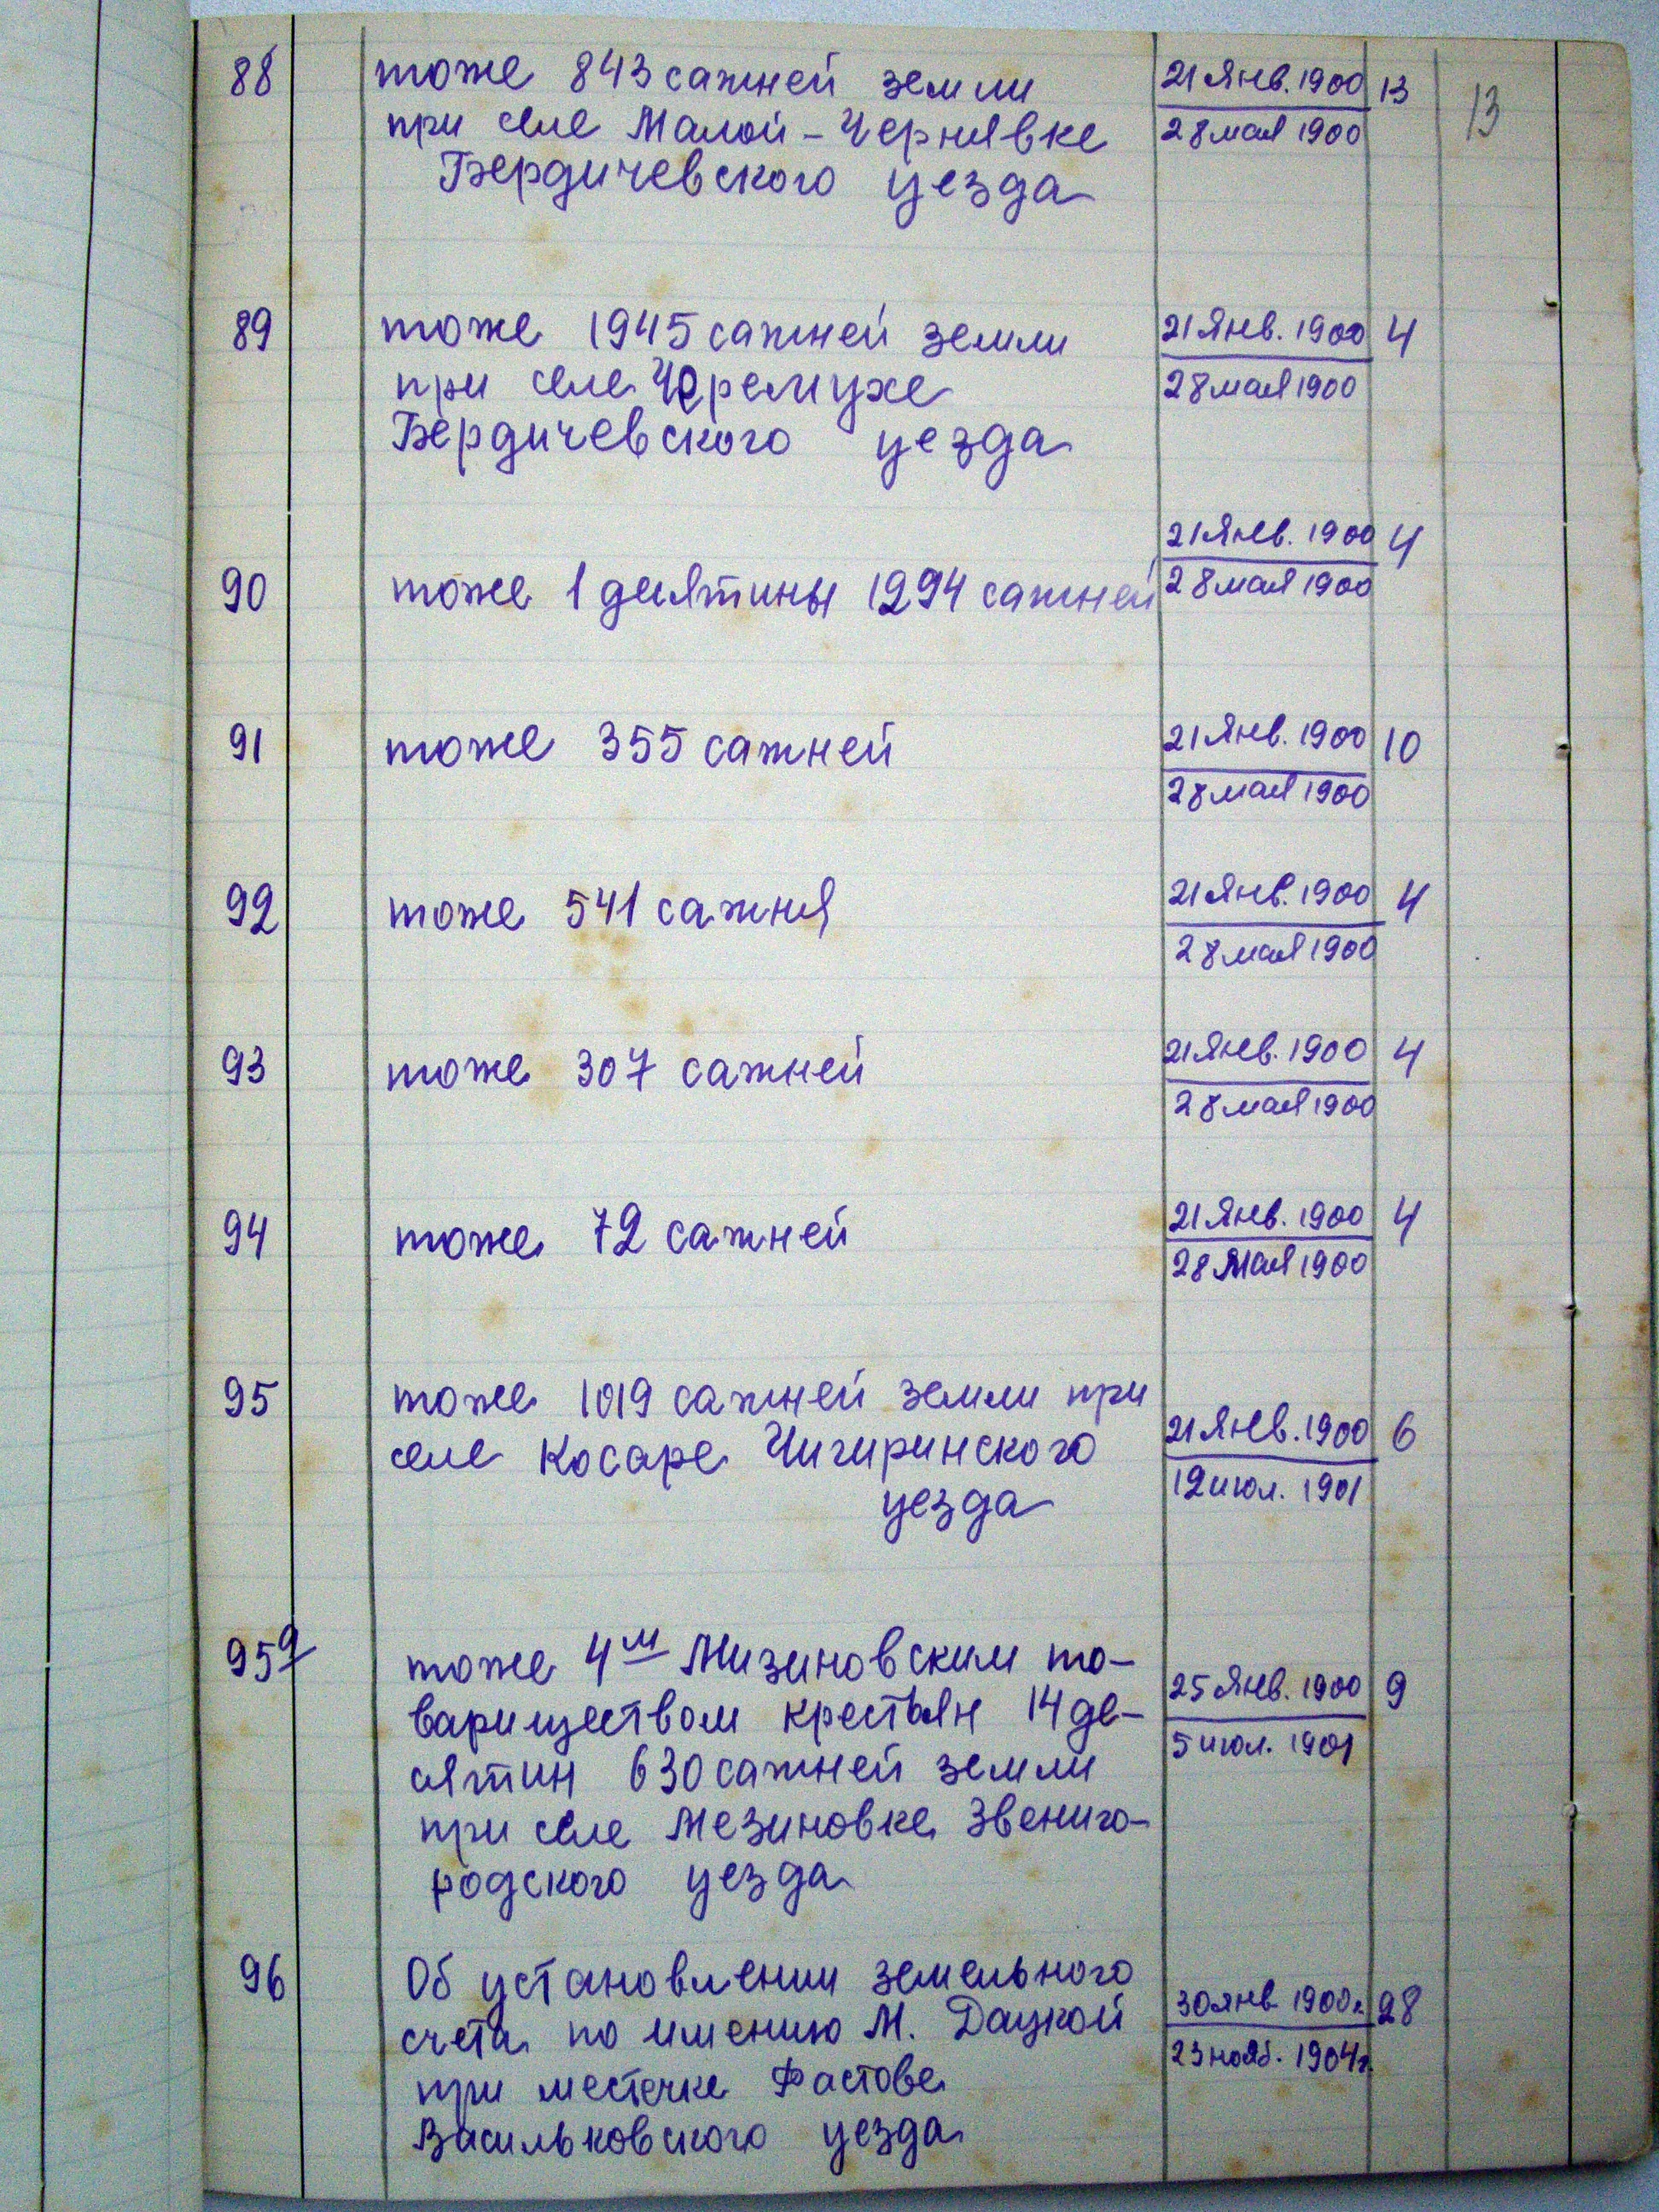 88 тоже 843 сажней земли 21 Янв. 1900 13 13
при селе Малой-Чернявке 28 мая 1900
Бердичевского уезда
89 тоже 1945 сажней земли 21 Янв. 1900 4
при селе Черемухе 28 мая 1900
Бердичевского уезда
21 Янв. 1900 4
90 тоже 1 десятины 1294 сажней 28 мая 1900
91 тоже 355 сажней 21 Янв. 1900 10
28 мая 1900
92 тоже 541 сажня 21 Янв. 1900 4
28 мая 1900
93 тоже 307 сажней 21 Янв. 1900 4
28 мая 1900
94 тоже 72 сажней 21 Янв. 1900 4
28 мая 1900
95 тоже 1019 сажней земли при
селе Косаре Чигиринского 21 Янв. 1900 6
уезда 12 июл. 1901
95а тоже 4м Мизиновским то-
вариществом крестьян 14 де- 25 Янв. 1900 9
сятин 630 сажней земли 5 июл. 1901
при селе Мезиновке Звениго-
родского уезда
96 Об установлении земельного
счета по имению М. Дацкой 30 янв 1900г. 28
при местечке Фастове 23 нояб. 1904г.
Васильковского уезда